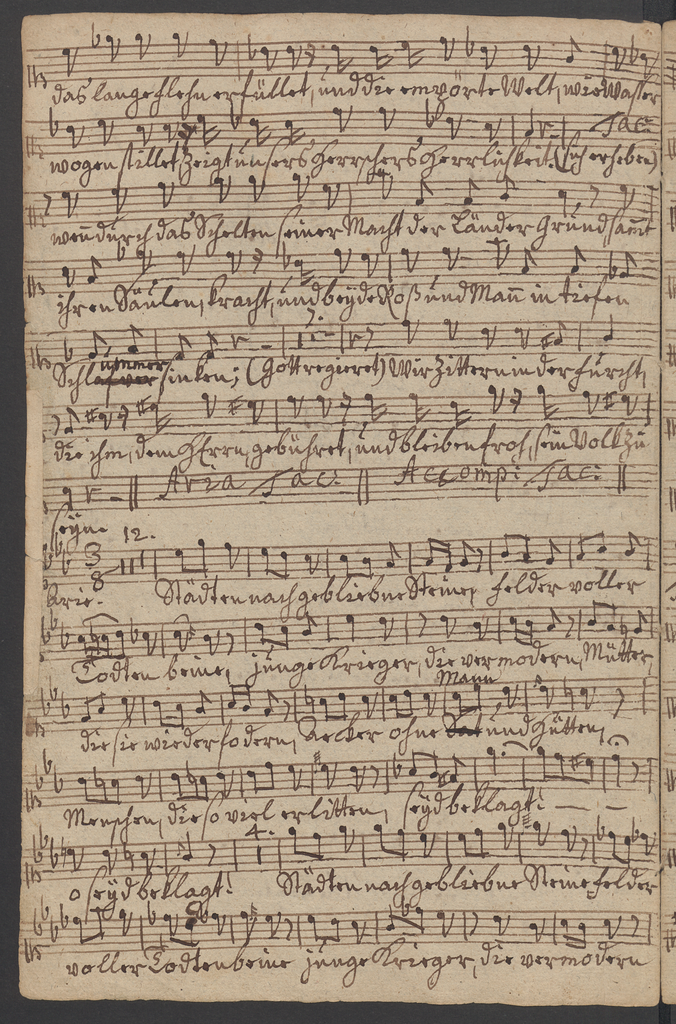 das lange flehn erfüllet, und die empörte Welt, wie Wasser
Tac:
wogen stillet, zeigt unsers Herrschers Herrlichkeit. (sich erheben)
wen̄ durch das Schelten seiner Macht der Länder Grund sammt
ihren Säulen, kracht, und beyde Roß und Man̄ in tiefen
7.
Schlummer sinken; (Gott regieret) Wir zittern in der Furcht,
die ihm, dem Herrn, gebühret, und bleiben froh, sein Volk zu
Aria Tac: Accomp: Tac:
seyn.
12.
3
8
Arie. Städten nachgebliebne Steine, Felder voller
Todten beine, junge Krieger, die vermodern, Mütter,
Mann
die sie wiederfodern, Aecker ohne und Hütten,
Menschen, die so viel erlitten, seyd beklagt! — — —
4.
o seyd beklagt! Städten nachgebliebne Steine, Felder
voller Todtenbeine junge Krieger, die vermodern